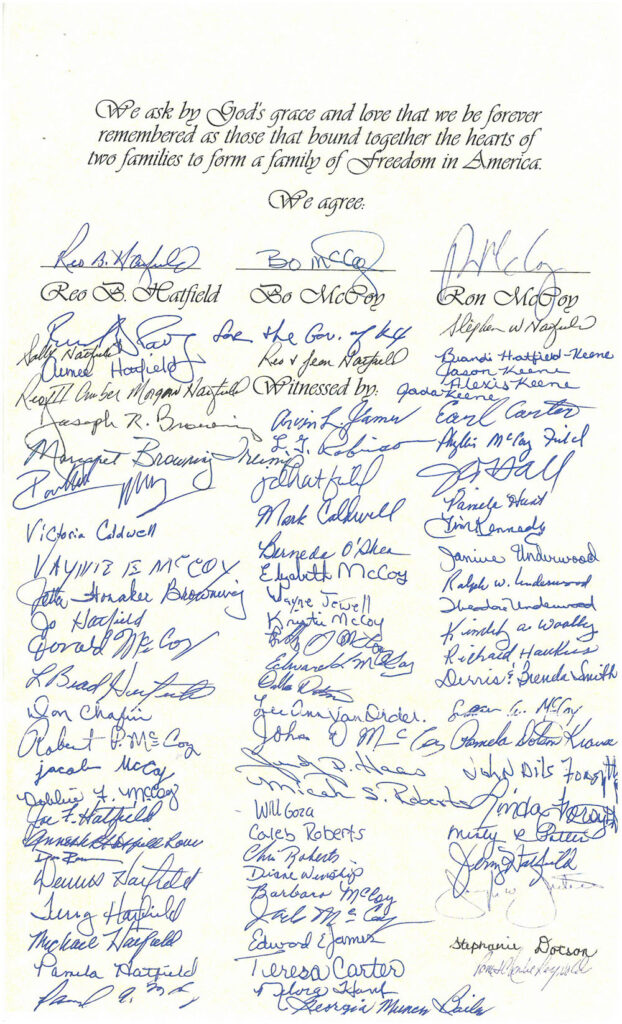 We ask by God's grace and love that we be forever
remembered as those that bound together the hearts of
two families to form a family of Freedom in America.
We agree:
Reo B. Hatfield
Bo McCoy
Ron McCoy
Reo B. Hatfield
Bo McCoy
Ron McCoy
for the Gov. of Ky
Stephen W Hatfield
Sally Hatfield
Aimee Hatfield
Reo & Jean Hatfield
Brandi Hatfield-Keene
Jason Keene
Alexis Keene
Jada Keene
Amber Morgan Hatfield
Witnessed by:
Joseph R. Browning
Arvin L.
Earl Carter
Margaret Browning
L. G. Robinson
Phyllis McCoy
Jd Hatfield
Hall
Mark Caldwell
Pamela Hunt
Victoria Caldwell
Tim Kennedy
Berneda O'Shea
Janine Underwood
McCoy
Elizabeth McCoy
Ralph W. Underwood
Honaker Browning
Wayne Jewell
Theodore Underwood
Jo Hatfield
Krystie McCoy
Kimberly A. Woolley
Donald McCoy
Richard Hawkins
Edward McCoy
Derris & Brenda Smith
L Brad Hatfield
Don Chafin
Lee Ann VanOrder.
McCoy
Robert P. McCoy
John D McCoy
Pamela Dotan
Jacob McCoy
Judy D. Haas
John Dils Forsyth
Debbie F. McCoy
Micah S. Roberts
Linda Forsyth
Joe F. Hatfield
Will Goza
Misty R Potter
Caleb Roberts
Chris Roberts
Jerry Hatfield
Dennis Hatfield
Diane Winship
Barbara McCoy
Terry Hatfield
Jack McCoy
Michael Hatfield
Edward E James
Stephanie Dotson
Pamela Hatfield
Teresa Carter
Flora Hunt
Georgia